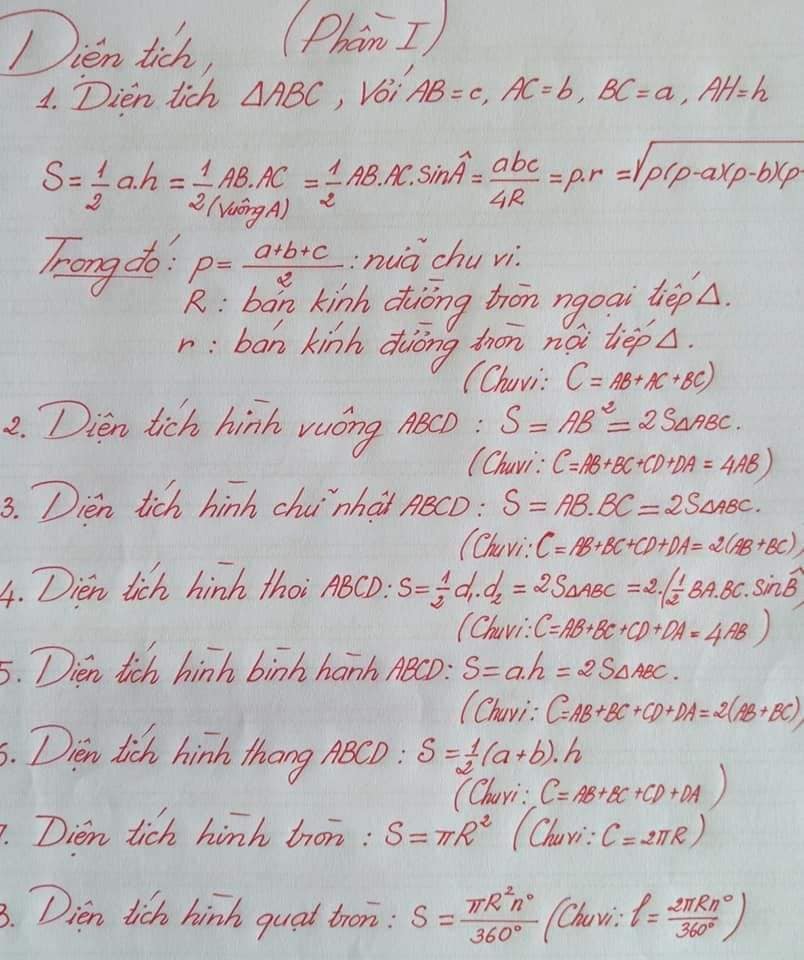 Diện tích, (Phần I)
1. Diện tích ΔABC, Với AB = c, AC = b, BC = a, AH = h
S = 1/2 a.h = 1/2 AB.AC (Vuông A) = 1/2 AB.AC.Sin = abc/4R = p.r = √p(p-a)(p-b)(p-
Trong đó: p = a+b+c/2 : nửa chu vi.
R : bán kính đường tròn ngoại tiếp Δ.
r : bán kính đường tròn nội tiếp Δ.
(Chu vi: C = AB + AC + BC)
2. Diện tích hình vuông ABCD : S = AB² = 2SΔABC.
(Chu vi: C = AB + BC + CD + DA = 4AB)
3. Diện tích hình chữ nhật ABCD : S = AB.BC = 2SΔABC.
(Chu vi: C = AB + BC + CD + DA = 2(AB + BC)
4. Diện tích hình thoi ABCD : S = 1/2 d₁.d₂ = 2SΔABC = 2.(1/2 BA.BC.SinB̂)
(Chu vi: C = AB + BC + CD + DA = 4AB)
5. Diện tích hình bình hành ABCD : S = a.h = 2SΔABC.
(Chu vi: C = AB + BC + CD + DA = 2(AB + BC)
6. Diện tích hình thang ABCD : S = 1/2 (a + b).h
(Chu vi: C = AB + BC + CD + DA)
7. Diện tích hình tròn : S = πR² (Chu vi: C = 2πR)
8. Diện tích hình quạt tròn : S = πR²n°/360° (Chu vi: l = 2πRn°/360°)